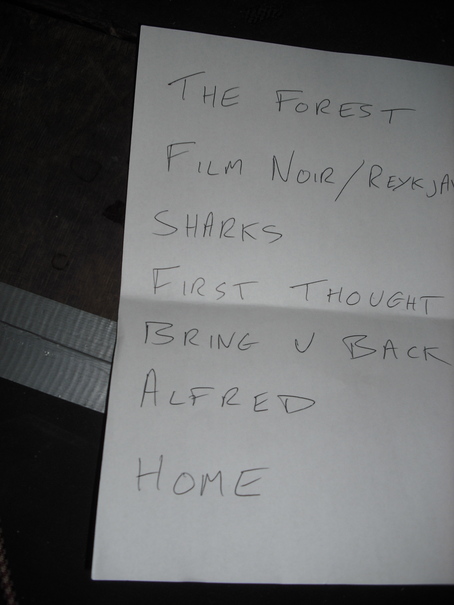 THE FOREST
FILM NOIR/REYKJAV
SHARKS
FIRST THOUGHT
BRING U BACK
ALFRED
HOME